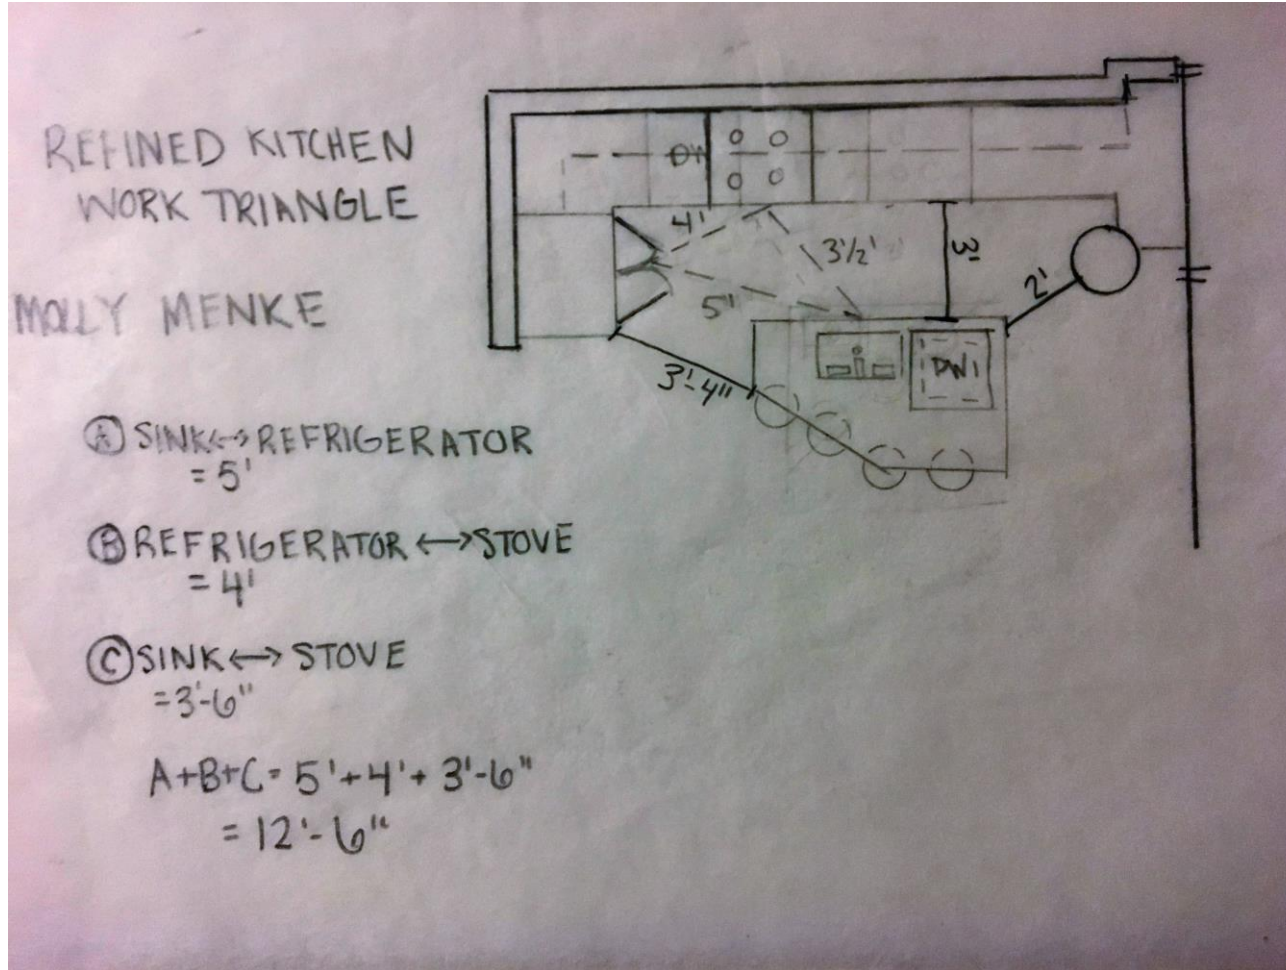 REFINED KITCHEN
WORK TRIANGLE
MOLLY MENKE
Ⓐ SINK↔REFRIGERATOR
= 5'
Ⓑ REFRIGERATOR ↔ STOVE
= 4'
Ⓒ SINK ↔ STOVE
=3'-6"
A+B+C= 5'+4'+ 3'-6"
= 12'-6"
4'
3½'
3'
2'
5'
3'-4"
DW